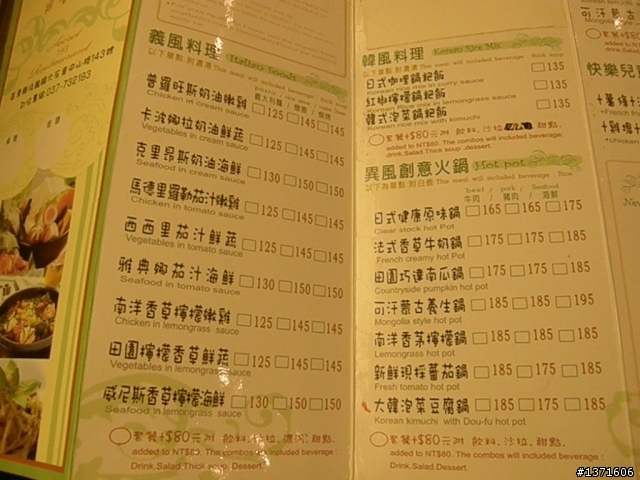 143號
037-732193
義風料理 Italian Foods
以下餐點 附濃湯 This meal will included beverage : thick soup
義大利麵 / 燉飯 / 焗烤
普羅旺斯奶油嫩雞 □125 □145 □145
Chicken in cream sauce
卡波娜拉奶油鮮蔬 □125 □145 □145
Vegetables in cream sauce
克里昂斯奶油海鮮 □130 □150 □150
Seafood in cream sauce
馬德里羅勒茄汁嫩雞 □125 □145 □145
Chicken in tomato sauce
西西里茄汁鮮蔬 □125 □145 □145
Vegetables in tomato sauce
雅典娜茄汁海鮮 □130 □150 □150
Seafood in tomato sauce
南洋香草檸檬嫩雞 □125 □145 □145
Chicken in lemongrass sauce
田園檸檬香草鮮蔬 □125 □145 □145
Vegetables in lemongrass sauce
威尼斯香草檸檬海鮮 □130 □150 □150
Seafood in lemongrass sauce
套餐+$80元附 飲料. 沙拉. 濃湯. 甜點.
added to NT$80. The combos will included beverage :
Drink.Salad.Thick soup. Dessert.
韓風料理 Korean Rice Mix
以下餐點 附濃湯 This meal will included beverage : thick soup
日式咖哩鍋粑飯 □135
Korean rice mix in curry sauce
紅椒檸檬鍋粑飯 □135
Korean rice mix in lemongrass sauce
韓式泡菜鍋粑飯 □135
Korean rice mix with kimuchi
套餐+$80元附 飲料. 沙拉
added to NT$80. The combos will included beverage :
drink.Salad.Thick soup .dessert.
異風創意火鍋 Hot pot
以下為餐點 附白飯 This meal will included beverage : Rice
beef / pork / Seafood
牛肉 / 豬肉 / 海鮮
日式健康原味鍋 □165 □165 □175
Clear stock hot Pot
法式香草牛奶鍋 □175 □175 □185
French creamy hot Pot
田園巧達南瓜鍋 □185 □175 □185
Countryside pumpkin hot pot
可汗蒙古養生鍋 □185 □185 □195
Mongolia style hot pot
南洋香茅檸檬鍋 □185 □175 □185
Lemongrass hot pot
新鮮現採蕃茄鍋 □185 □175 □185
Fresh tomato hot pot
大韓泡菜豆腐鍋 □185 □175 □185
Korean kimuchi with Dou-fu hot pot
套餐+$80元附 飲料. 沙拉. 甜點.
added to NT$80. The combos will included beverage :
Drink.Salad.Dessert.
可汗蒙古
套餐+$80
added to
Drink.Sal
快樂兒
#1371606